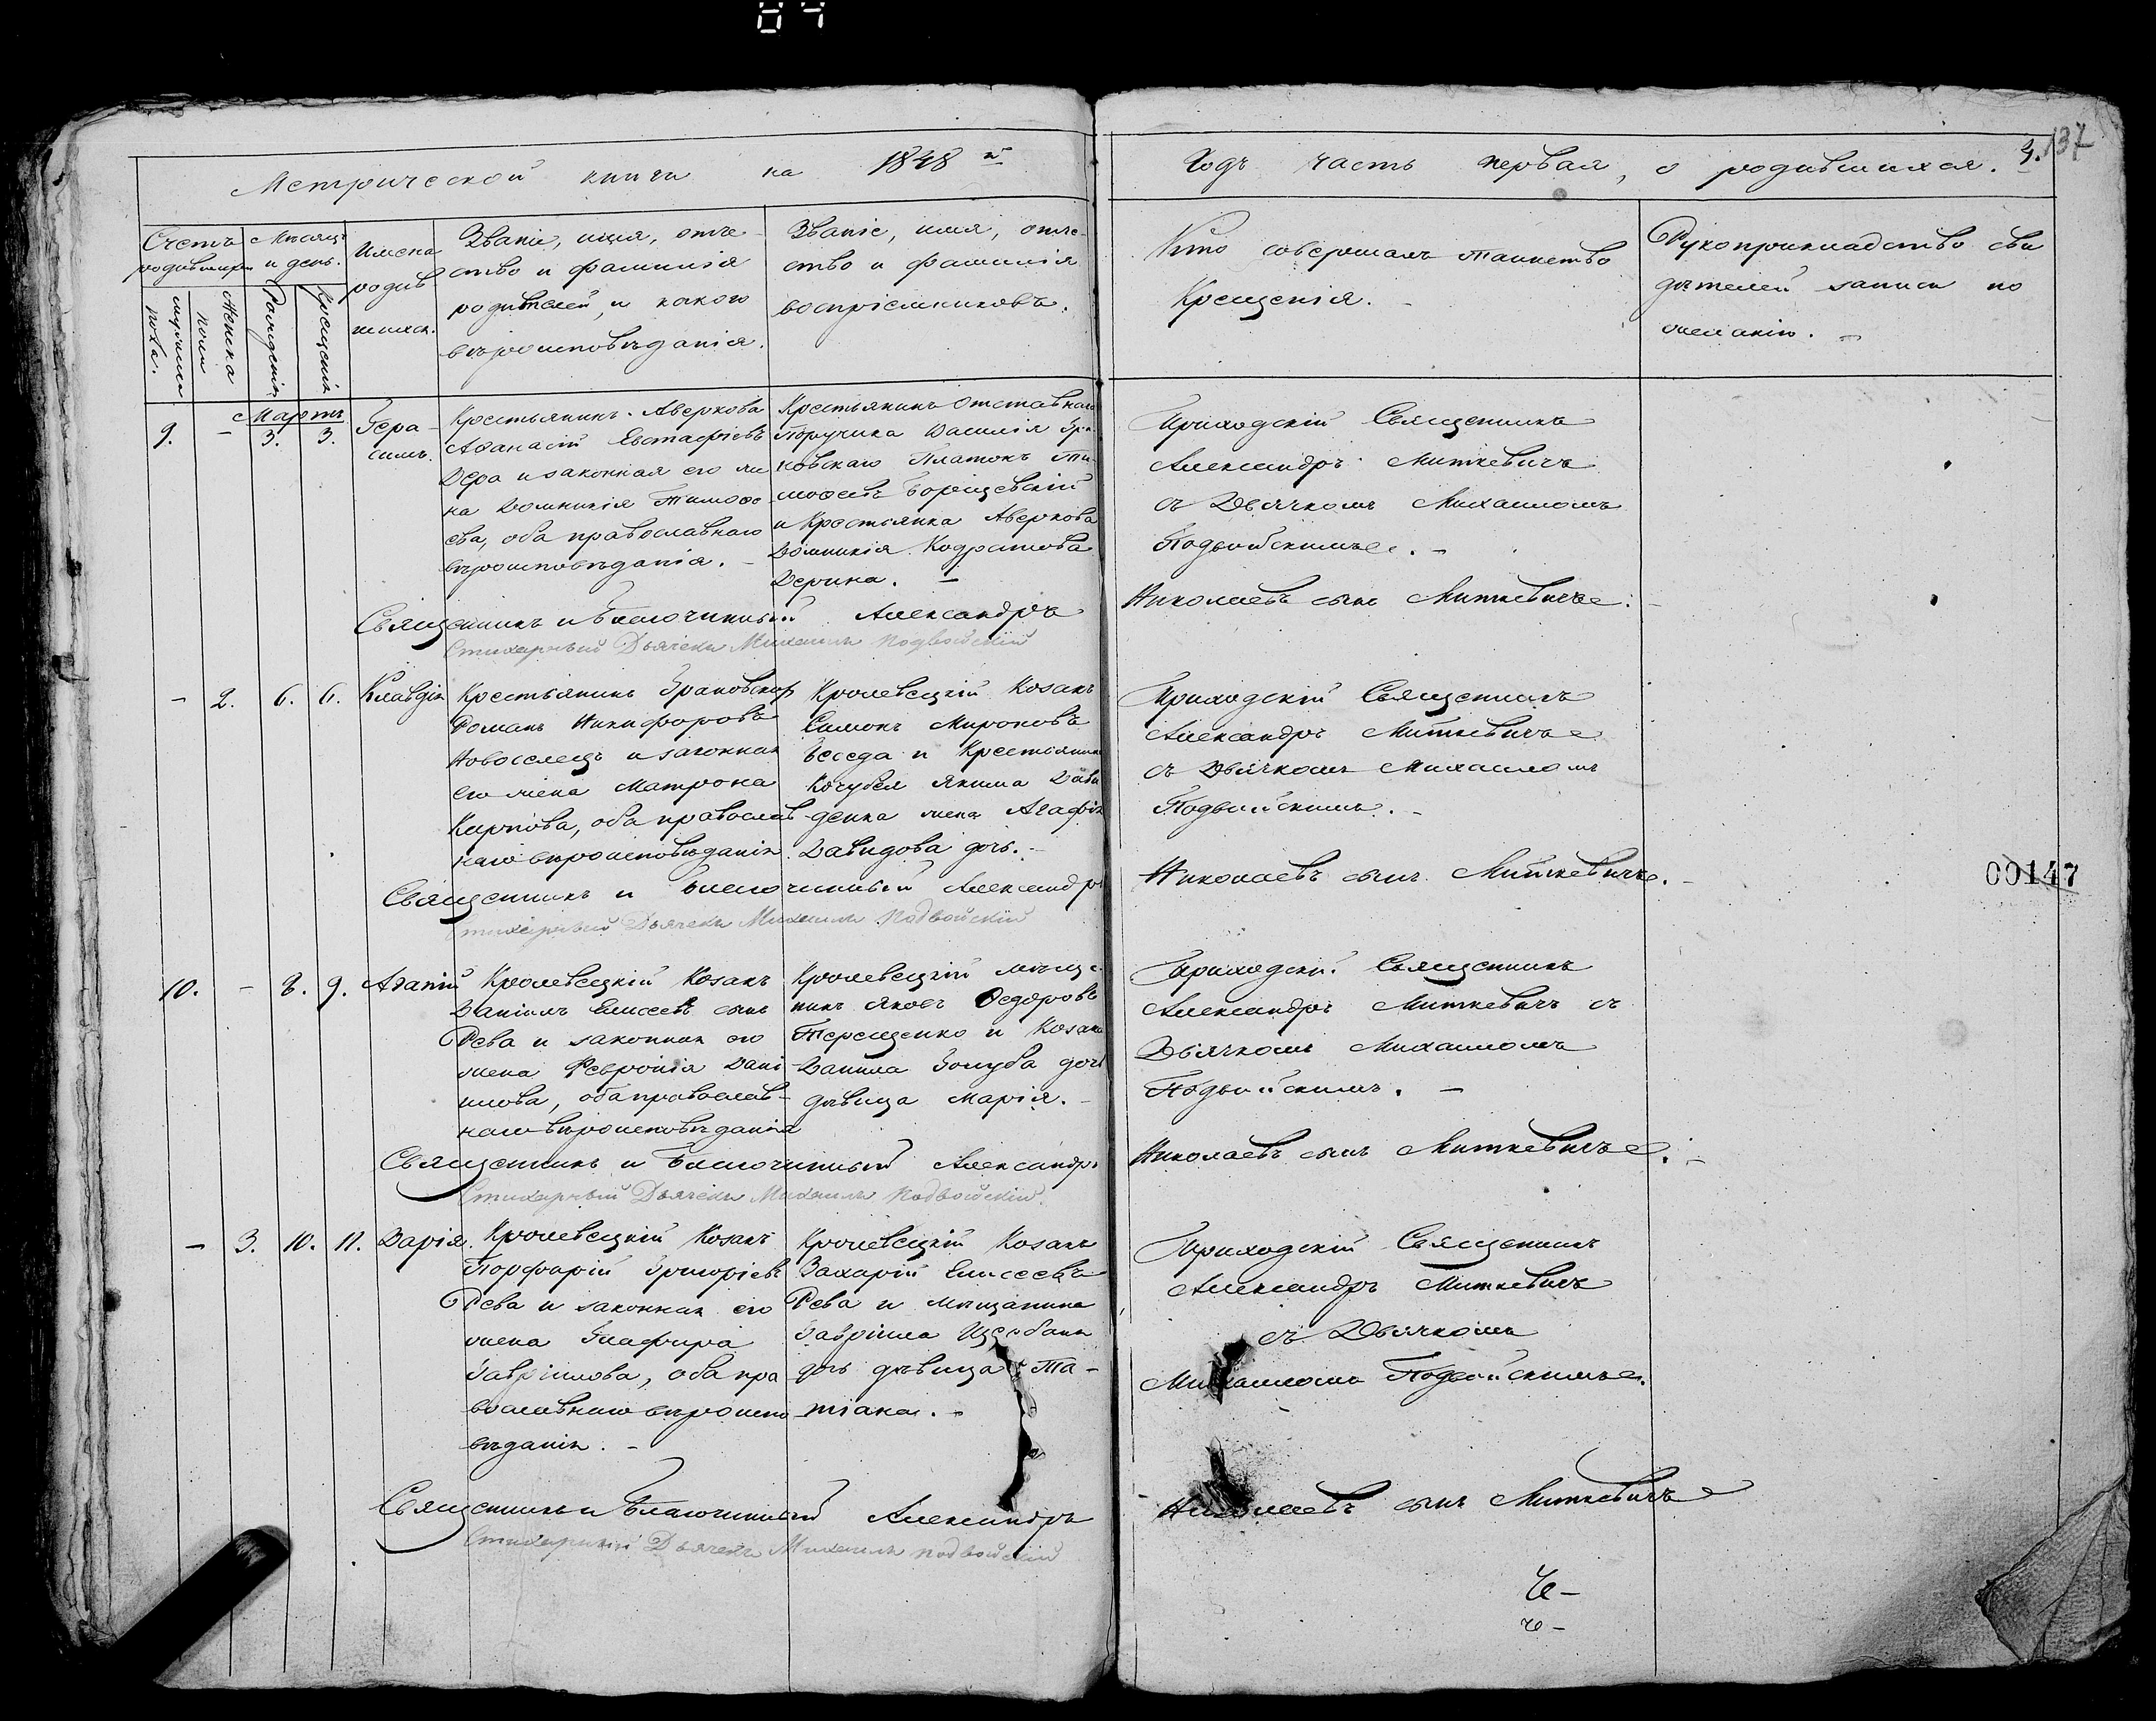 Метрической книги на 1848 й
Годъ часть первая, о родившихся.
9. 137
Счетъ родившихся
Мѣсяцъ и день.
мужеска пола.
Женска пола
Рожденія
Крещенія
Имена
родив
шихся.
Званіе, имя, отче-
ство и фамилія
родителей, и какого
вѣроисповѣданія.
Званіе, имя, отче-
ство и фамилія
воспріемниковъ.
Кто совершалъ таинство
Крещенія. -
Рукоприкладство сви
дѣтелей записи по
желанію. -
Мартъ
9. - 3. 3. Гера-
симъ.
Крестьянинъ Аверкова
Аѳанасій Евстафіевъ
Дера и законная его же
на Домникія Тимоѳе
ева, оба православнаго
вѣроисповѣданія. -
Крестьянинъ Отставнаго
Поручика Василія Гра-
новскаго Платонъ Ти-
моѳеевъ Борщевскій
и Крестьянка Аверкова
Домникія Кодратова
Дерина. -
Приходскій Священникъ
Александръ Миткевичъ
съ Дьячкомъ Михаиломъ
Подвойскимъ. -
Священникъ и Благочинный Александръ
Николаевъ сынъ Миткевичъ. -
Стихарный Дьячекъ Михаилъ Подвойскій
- 2. 6. 6. Клавдія
Крестьянинъ Грановскаго
Романъ Никифоровъ
Новоселецъ и законная
его жена Матрона
Карпова, оба православ
наго вѣроисповѣданія.
Кролевецкій Козакъ
Симонъ Мироновъ
Беседа и Крестьянина
Кочубея Якима Дави
денка жена Агафія
Давидова дочь. -
Приходскій Священникъ
Александръ Миткевичъ
съ Дьячкомъ Михаиломъ
Подвойскимъ. -
Священникъ и Благочинный Александръ
Николаевъ сынъ Миткевичъ. -
00147
Стихарный Дьячекъ Михаилъ Подвойскій
10. - 8. 9. Агапій
Кролевецкій Козакъ
Даніилъ Елисеевъ сынъ
Рева и законная его
жена Февронія Дані
илова, оба православ-
наго вѣроисповѣданія
Кролевецкій мѣща-
нинъ Яковъ Ѳедоровъ
Терещенко и Козака
Данила Голуба дочь
дѣвица Марія. -
Приходскій Священникъ
Александръ Миткевичъ съ
Дьячкомъ Михаиломъ
Подвойскимъ. -
Священникъ и Благочинный Александръ
Николаевъ сынъ Миткевичъ. -
Стихарный Дьячекъ Михаилъ Подвойскій
- 3. 10. 11. Дарія.
Кролевецкій Козакъ
Порфирій Григоріевъ
Рева и законная его
жена Глафира
Гавріилова, оба пра
вославнаго вѣроиспо
вѣданія. -
Кролевецкій Козакъ
Захарій Елисеевъ
Рева и мѣщанина
Гавріила
дочь дѣвица Та-
тіана. -
Приходскій Священникъ
Александръ Миткевичъ
съ Дьячкомъ
Михаиломъ Подвойскимъ.
Священникъ и Благочинный Александръ
Николаевъ сынъ Миткевичъ
Стихарный Дьячекъ Михаилъ Подвойскій